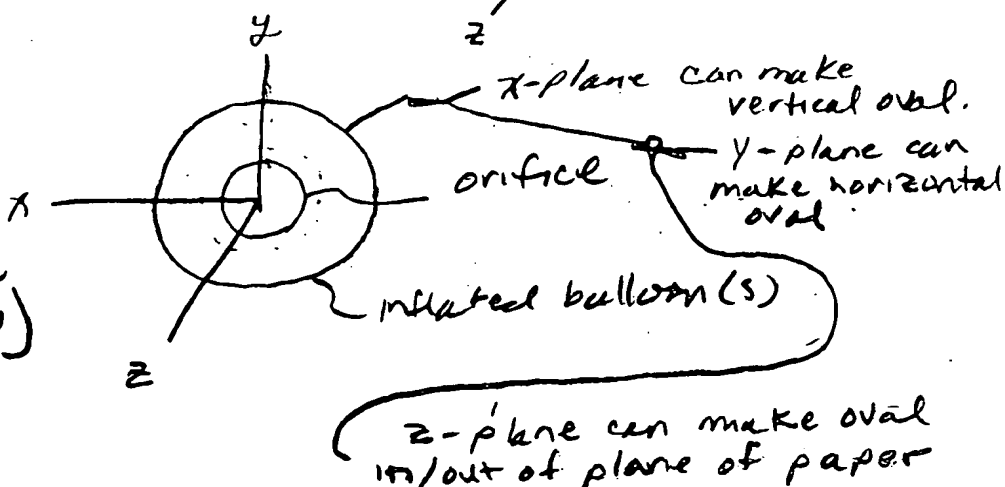 y
z
x-plane can make
vertical oval.
y-plane can
make horizontal
oval
orifice
x
inflated balloon(s)
)
z
z-plane can make oval
in/out of plane of paper